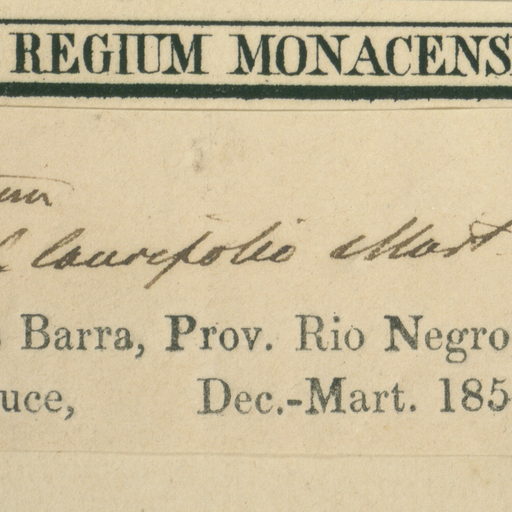 REGIUM MONACENS
laurifolio Mart
Barra, Prov. Rio Negro
uce, Dec.-Mart. 185